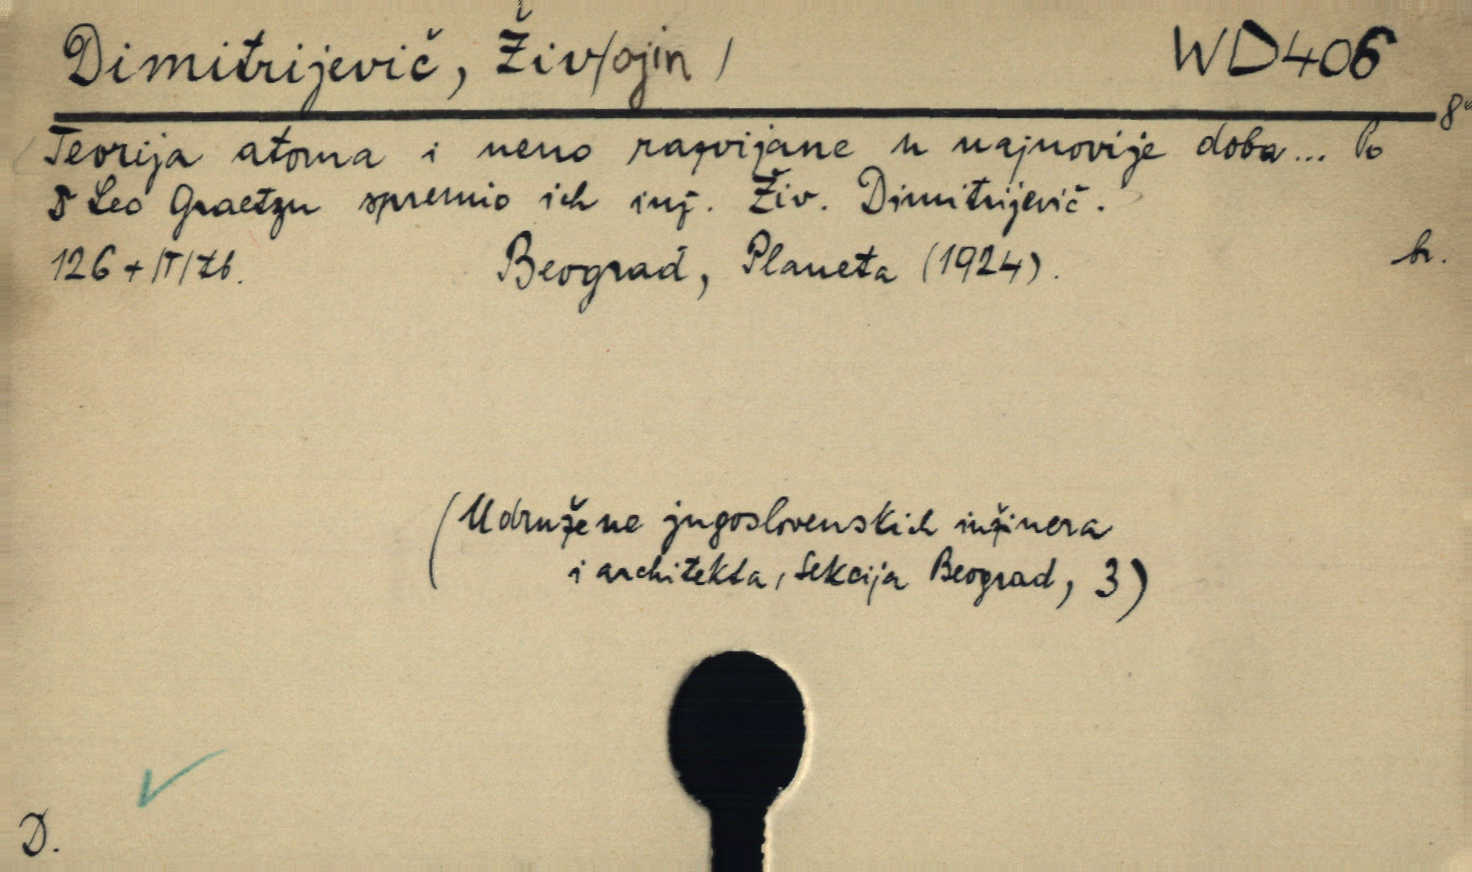 Dimitrijevič, Živ/ojin/ WD406
8°
Teorija atoma i neno razvijane u najnovije doba... Po
Leo Graetzu spremio ich inž. Živ. Dimitrijevič.
126+/IT/tb. Beograd, Planeta (1924). br.
(Udružene jugoslovenskich inžinera
i architekta, Sekcija Beograd, 3)
D.